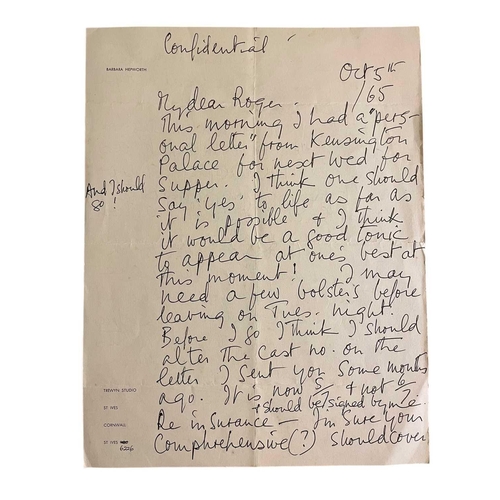 Confidential
BARBARA HEPWORTH
Oct 5th
/65
My dear Roger.
This morning I had a "pers-
onal letter" from Kensington
Palace for next Wed for
Supper. I think one should
And I should
go!
Say 'yes' to life as far as
it is possible & I think
it would be a good tonic
to appear at one's best at
this moment! I may
need a few bolsters before
leaving on Tues. night.
Before I go I think I should
alter the cast no. on the
letter I sent you some months
ago. It is now 5/ & not 6/
& should be signed by me
Re insurance – I'm sure your
Comphrehensive (?) should cover
TREWYN STUDIO
ST IVES
CORNWALL
ST IVES
6226